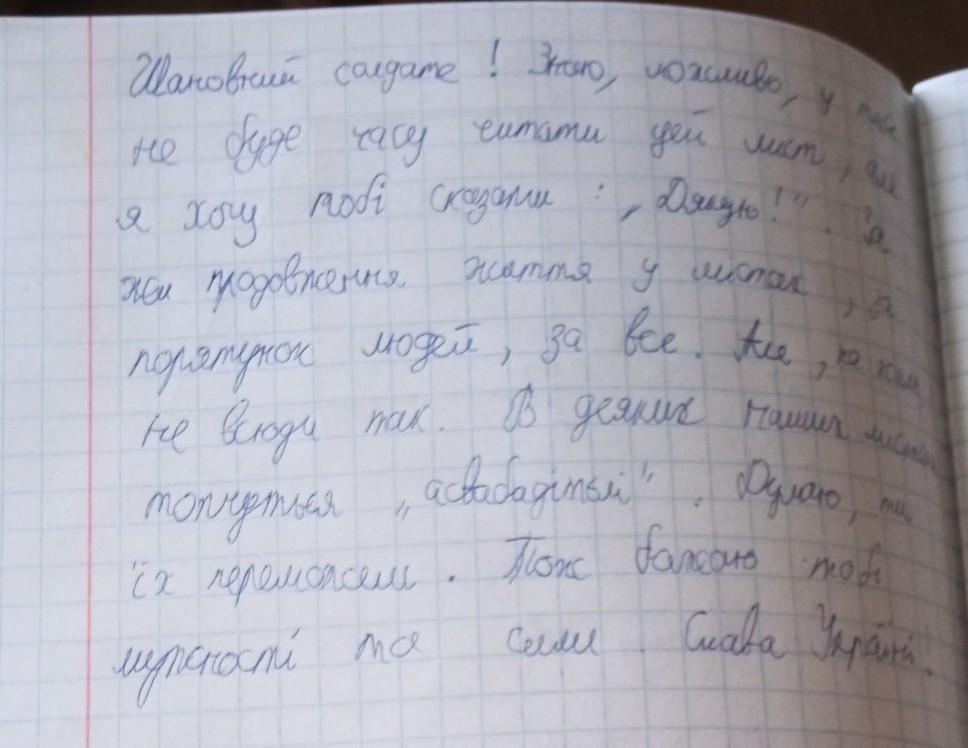 Шановний солдате! Знаю, можливо, у тебе
не буде часу читати цей лист, але
я хочу тобі сказати: „Дякую!". За
продовження життя у містах, за
порятунок людей, за все. Але, на жаль
не всюди так. В деяких наших містах
топчуться „асвабадітєлі". Думаю, ти
їх переможеш. Тож бажаю тобі
мужності та сили. Слава Україні.